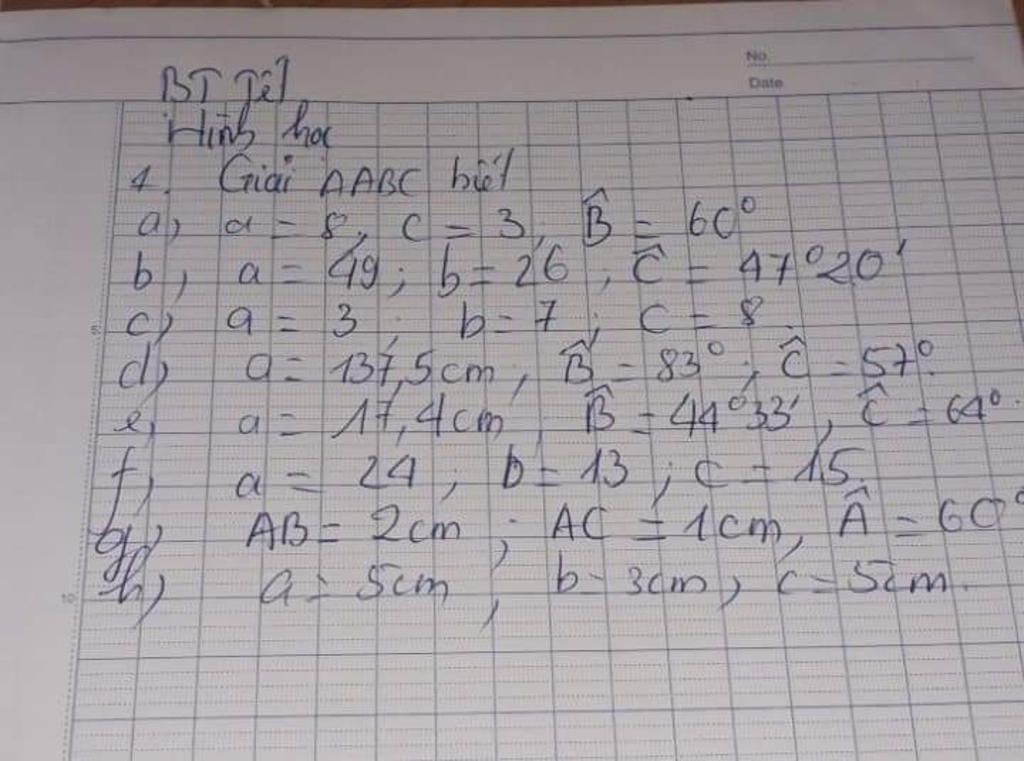 No.
Date
BT Tết
Hình học
1. Giải ΔABC biết
a) a = 8, c = 3, B̂ = 60°
b) a = 49; b = 26, Ĉ = 47°20'
c) a = 3; b = 7; c = 8.
d) a = 137,5cm, B̂ = 83°; Ĉ = 57°.
e, a = 17,4cm, B̂ = 44°33', Ĉ = 64°.
f) a = 24; b = 13; c = 15.
g) AB = 2cm; AC = 1cm, Â = 60°
h) a = 5cm, b = 3cm, c = 5cm.
5
10